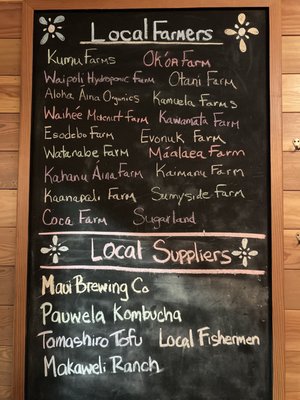 Local Farmers
Kumu Farms Oko'a Farm
Waipoli Hydroponic Farm Otani Farm
Aloha Aina Organics Kamuela Farms
Waihee Makent Farm Kawamata Farm
Esodebo Farm Evonuk Farm
Watanabe Farm Mā'alaea Farm
Kahanu Aina Farm Kaimanu Farm
Kaanapali Farm Sunnyside Farm
Coca Farm Sugarland
Local Suppliers
Maui Brewing Co
Pauwela Kombucha
Tamashiro Tofu Local Fishermen
Makaweli Ranch